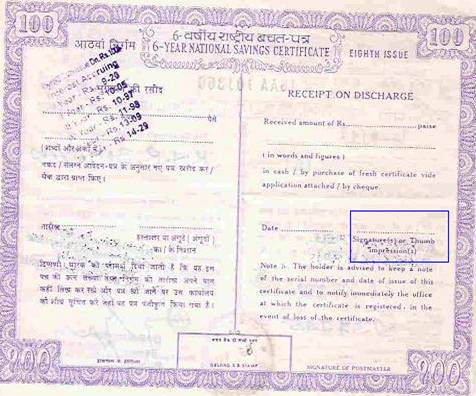 100
100
6-वर्षीय राष्ट्रीय बचत-पत्र
आठवां निर्गम
6-YEAR NATIONAL SAVINGS CERTIFICATE
EIGHTH ISSUE
Accruing
9-20
10-05
10-97
11-98
Rs. 13-09
Rs. 14-29
की रसीद
RECEIPT ON DISCHARGE
पैसे
Received amount of Rs. paise
(शब्दों और अंकों में)
(in words and figures)
नकद / संलग्न आवेदन-पत्र के अनुसार नए पत्र खरीद कर /
चैक द्वारा प्राप्त किए।
in cash / by purchase of fresh certificate vide
application attached / by cheque.
तारीख
हस्ताक्षर या अंगूठे (अंगूठों)
का / के निशान
Date
Signature(s) or Thumb
impression(s)
टिप्पणी: धारक को परामर्श दिया जाता है कि वह इस
पत्र की क्रम संख्या तथा निर्गम की तारीख अपने पास
कहीं लिख कर रखे और पत्र खो जाने पर उस कार्यालय
को शीघ्र सूचित करे जहाँ वह पत्र पंजीकृत किया गया है।
Note: The holder is advised to keep a note
of the serial number and date of issue of this
certificate and to notify immediately the office
at which the certificate is registered, in the
event of loss of the certificate.
100
100
SIGNATURE OF POSTMASTER